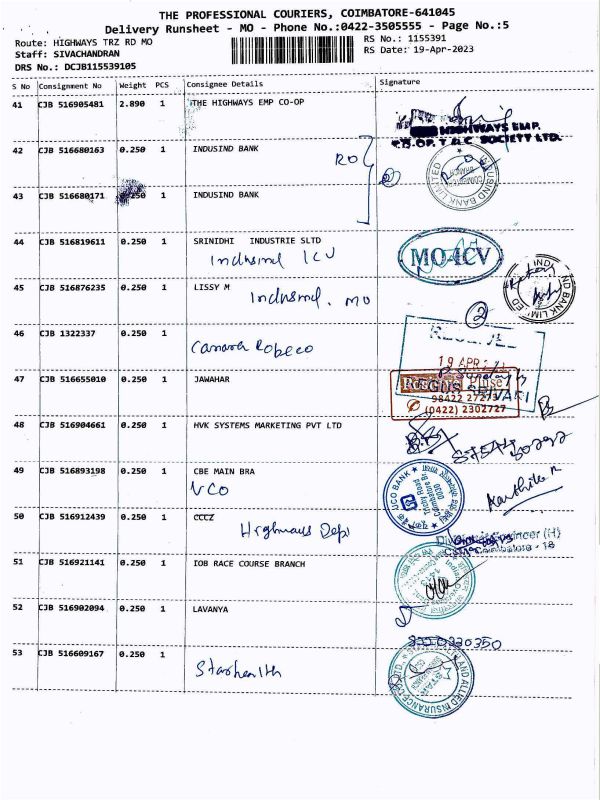 THE PROFESSIONAL COURIERS, COIMBATORE-641045
Delivery Runsheet - MO - Phone No.:0422-3505555 - Page No.:5
Route: HIGHWAYS TRZ RD MO
RS No.: 1155391
Staff: SIVACHANDRAN
RS Date: 19-Apr-2023
DRS No.: DCJB115539105
S No Consignment No Weight PCS Consignee Details Signature
41 CJB 516905481 2.890 1 THE HIGHWAYS EMP CO-OP
HIGHWAYS EMP.
CO.OP. T & C SOCIETY LTD.
42 CJB 516680163 0.250 1 INDUSIND BANK
RO
43 CJB 516680171 0.250 1 INDUSIND BANK
44 CJB 516819611 0.250 1 SRINIDHI INDUSTRIE SLTD
Indusind ICV
MO-ICV
45 CJB 516876235 0.250 1 LISSY M
Indusind. MO
2
46 CJB 1322337 0.250 1
Canara Robeco
19 APR
47 CJB 516655010 0.250 1 JAWAHAR
98422 27273
(0422) 2302727
48 CJB 516904661 0.250 1 HVK SYSTEMS MARKETING PVT LTD
49 CJB 516893198 0.250 1 CBE MAIN BRA
UCO
UCO BANK
Trichy Road
Coimbatore Br
0030
Karthika R
50 CJB 516912439 0.250 1 CCCZ
Highways Dept
Divisional Engineer (H)
Coimbatore - 18
51 CJB 516921141 0.250 1 IOB RACE COURSE BRANCH
52 CJB 516902094 0.250 1 LAVANYA
53 CJB 516609167 0.250 1
Starhealth
STAR HEALTH AND ALLIED INSURANCE CO. LTD.